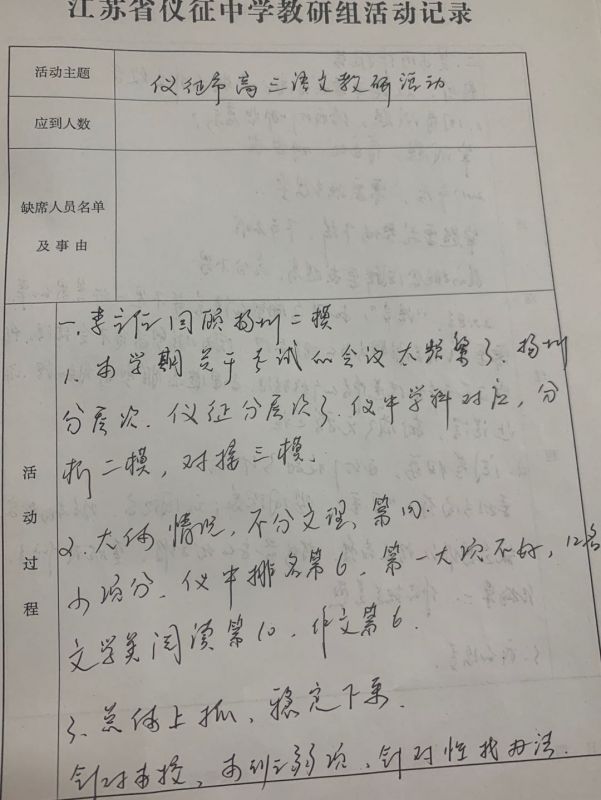 江苏省仪征中学教研组活动记录
活动主题
仪征市高三语文教研活动
应到人数
缺席人员名单
及事由
活动过程
一、李主任回顾扬州二模
1、本学期关于考试的会议太频繁了、扬州
分层次、仪征分层次了、仪中学科对应，分
析二模，对接三模。
2、大体情况，不分文理、第四.
小项分、仪中排名第6、第一大项不好，12名
文学类阅读第10、作文第6.
3、总体上抓、稳定下来.
针对本校、本班之弱项、针对性找办法.